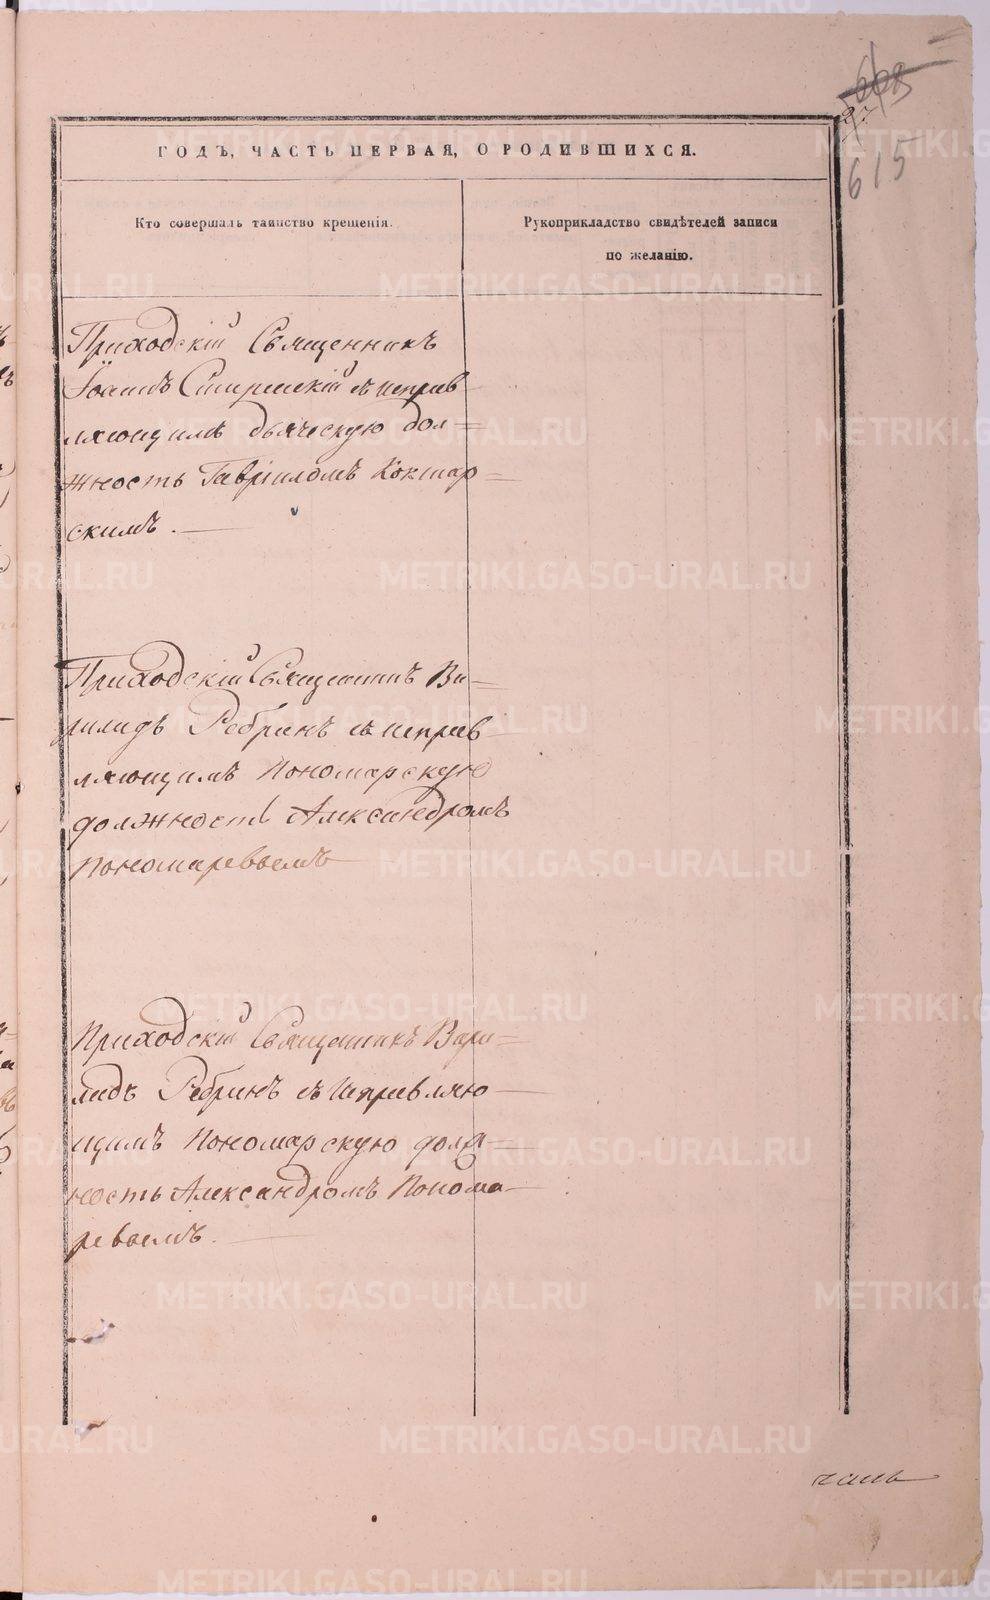 608
27
615
ГОДЪ, ЧАСТЬ ПЕРВАЯ, О РОДИВШИХСЯ.
Кто совершалъ таинство крещенія.
Рукоприкладство свидѣтелей записи
по желанію.
Приходскій Священникъ
Іоаннъ съ исправ
ляющимъ дьяческую дол=
жность Гавріиломъ Кокшар=
скимъ.
Приходскій Священникъ Ви=
рилидъ Ребринъ съ исправ
ляющимъ пономарскую
должность Александромъ
Пономаревымъ
Приходскій Священникъ Вири=
лидъ Ребринъ съ исправляю
щимъ пономарскую долж=
ность Александромъ Понома
ревымъ.
METRIKI.GASO-URAL.RU